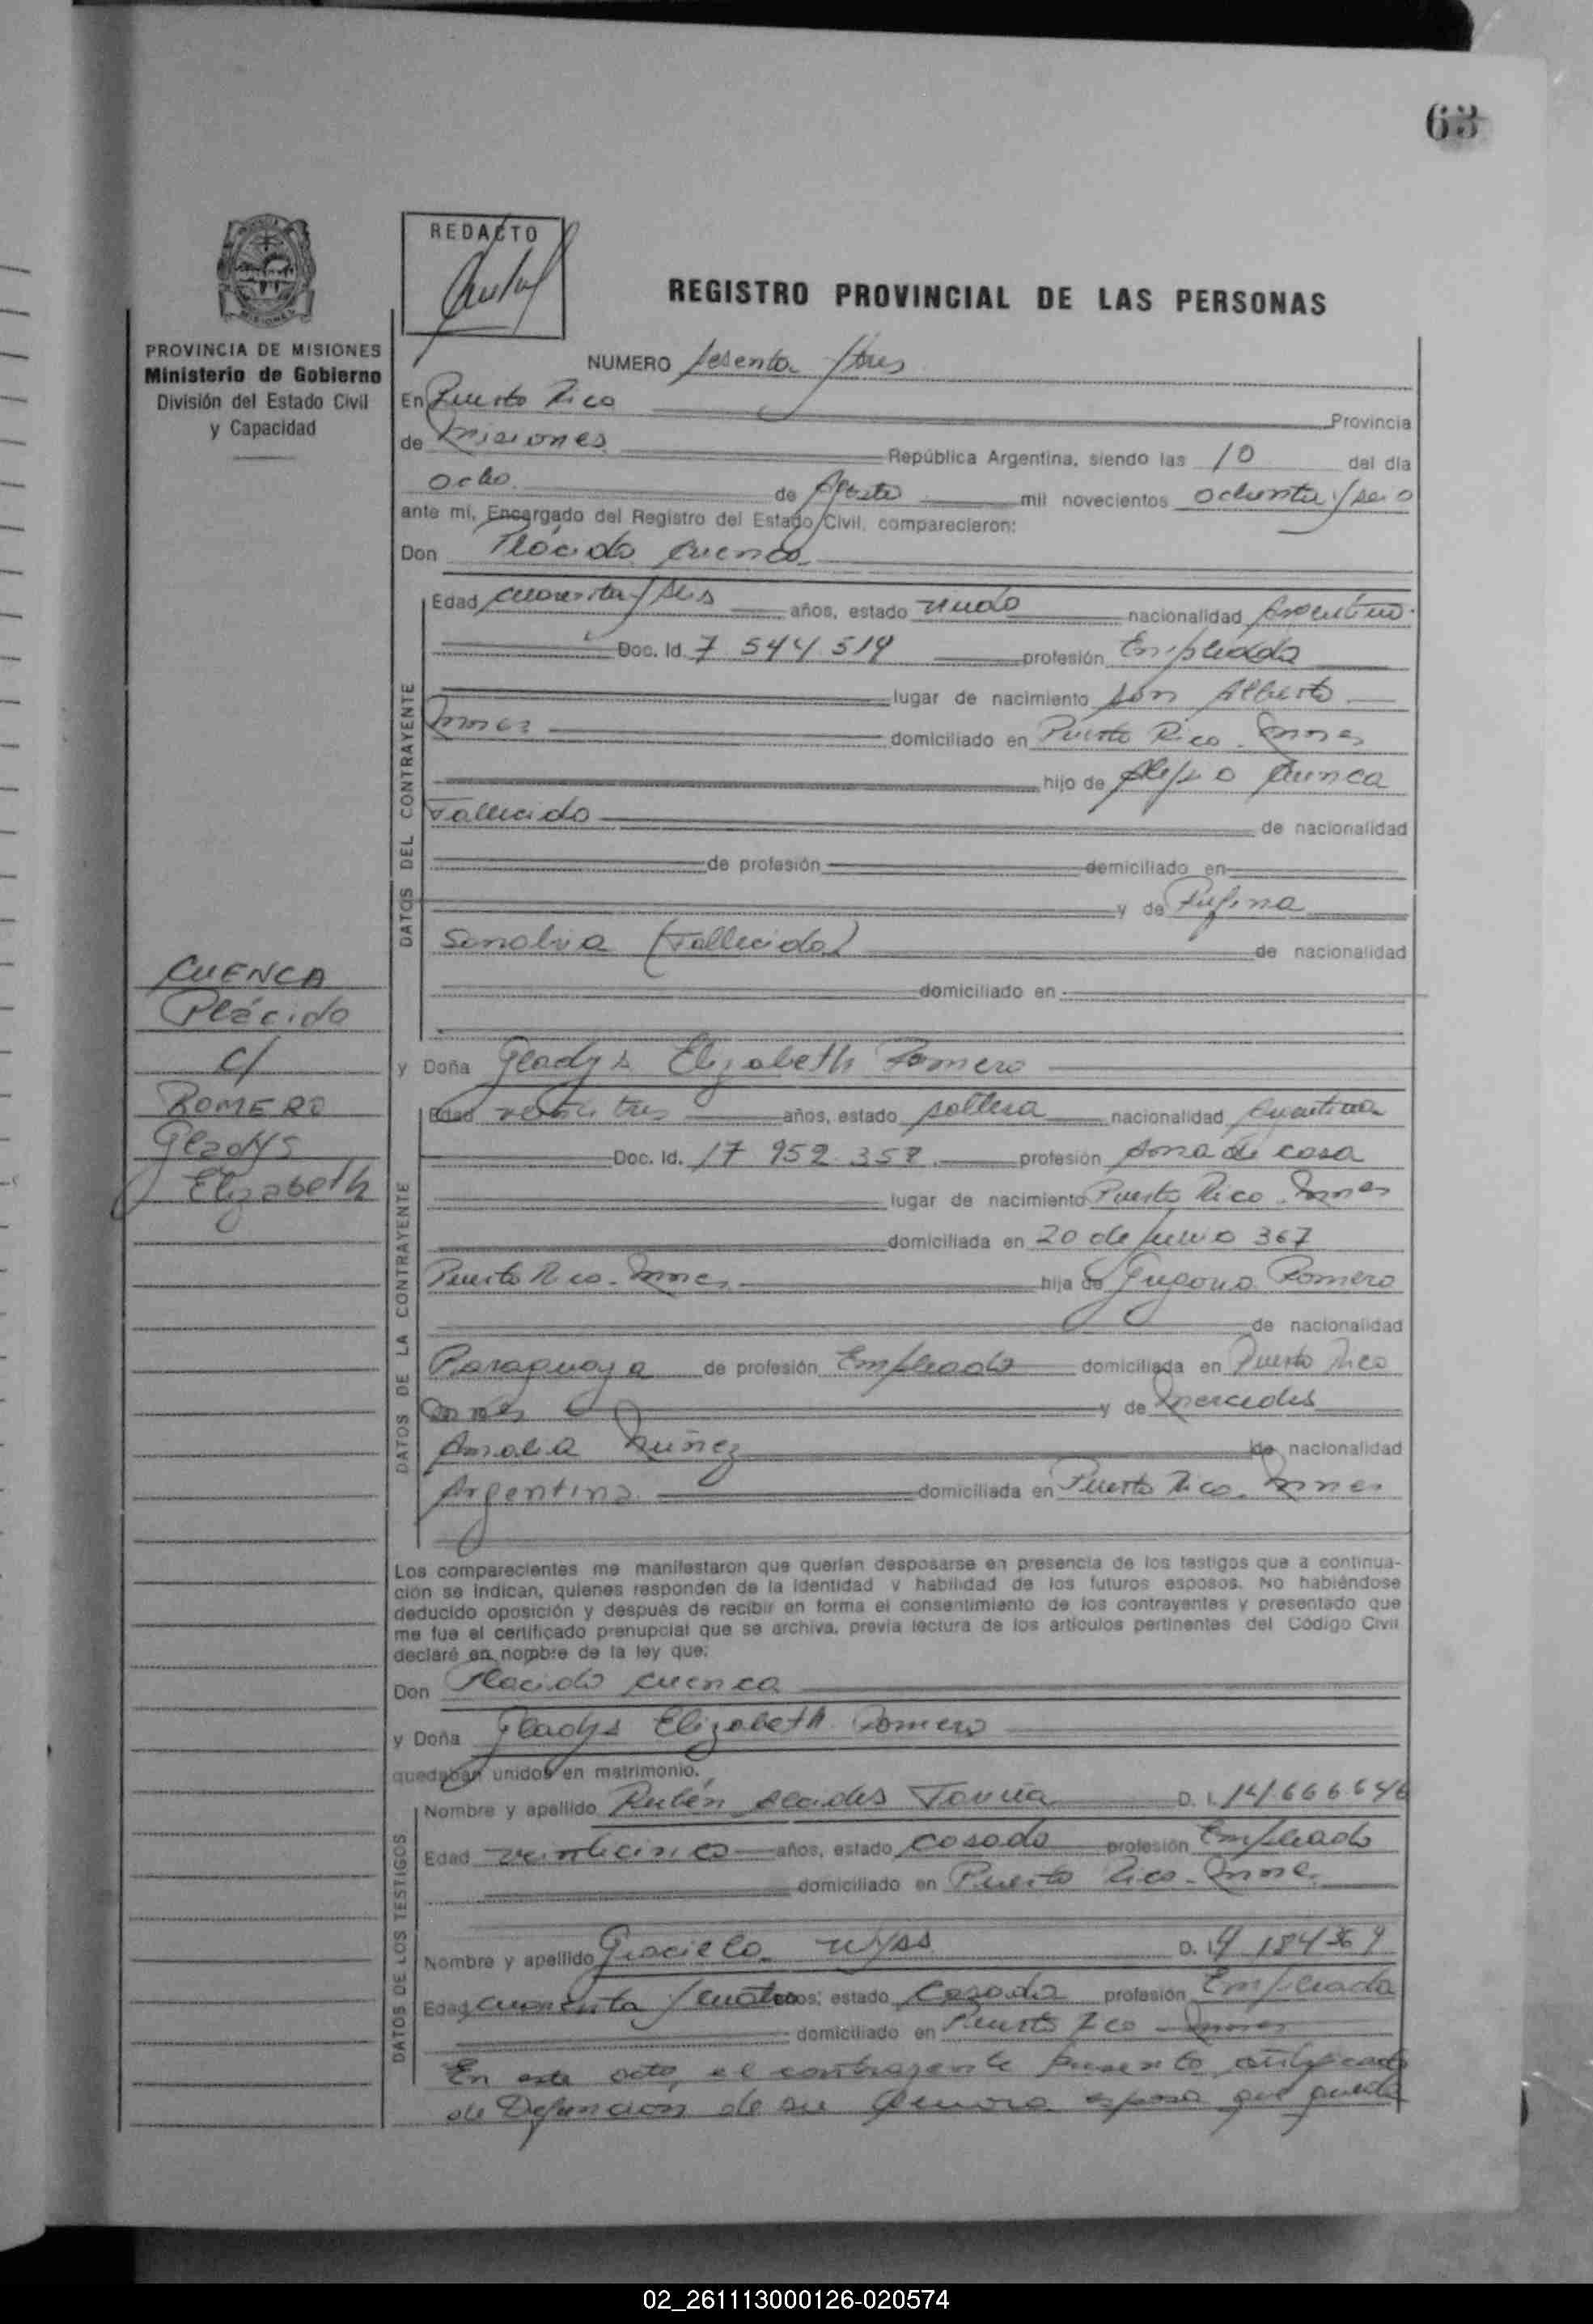 63
REDACTO
REGISTRO PROVINCIAL DE LAS PERSONAS
PROVINCIA DE MISIONES
Ministerio de Gobierno
División del Estado Civil
y Capacidad
NUMERO sesenta y tres
En Puerto Rico Provincia
de Misiones República Argentina, siendo las 10 del día
ocho de Agosto mil novecientos ochenta y seis
ante mí, Encargado del Registro del Estado Civil, comparecieron:
Don Plácido Cuenca
DATOS DEL CONTRAYENTE
Edad cuarenta y seis años, estado viudo nacionalidad Argentino
Doc. Id. 7 544 519 profesión Empleado
lugar de nacimiento Don Alberto
Mnes domiciliado en Puerto Rico - Mnes
hijo de Alejo Cuenca
Fallecido de nacionalidad
de profesión domiciliado en
y de Rufina
Sanabria (Fallecida) de nacionalidad
domiciliado en
CUENCA
Plácido
c/
ROMERO
Gladys
Elizabeth
y Doña Gladys Elizabeth Romero
DATOS DE LA CONTRAYENTE
Edad veintitres años, estado soltera nacionalidad Argentina
Doc. Id. 17 952 358 profesión Ama de casa
lugar de nacimiento Puerto Rico - Mnes
domiciliada en 20 de Junio 367
Puerto Rico - Mnes hija de Gregorio Romero
de nacionalidad
Paraguaya de profesión Empleado domiciliada en Puerto Rico
Mnes y de Mercedes
Amalia Núñez de nacionalidad
Argentina domiciliada en Puerto Rico - Mnes
Los comparecientes me manifestaron que querían desposarse en presencia de los testigos que a continua-
ción se indican, quienes responden de la identidad y habilidad de los futuros esposos. No habiéndose
deducido oposición y después de recibir en forma el consentimiento de los contrayentes y presentado que
me fue el certificado prenupcial que se archiva, previa lectura de los artículos pertinentes del Código Civil
declaré en nombre de la ley que:
Don Placido Cuenca
y Doña Gladys Elizabeth Romero
quedaban unidos en matrimonio.
DATOS DE LOS TESTIGOS
Nombre y apellido Rubén Alcides D. I. 14.666.646
Edad veinticinco años, estado casado profesión Empleado
domiciliado en Puerto Rico - Mnes
Nombre y apellido Graciela Wyss D. I. 4 184 369
Edad cuarenta y cuatro años, estado Casada profesión Empleada
domiciliado en Puerto Rico - Mnes
En este acto, el contrayente presento certificado
de Defunción de su primera esposa que queda
02_261113000126-020574